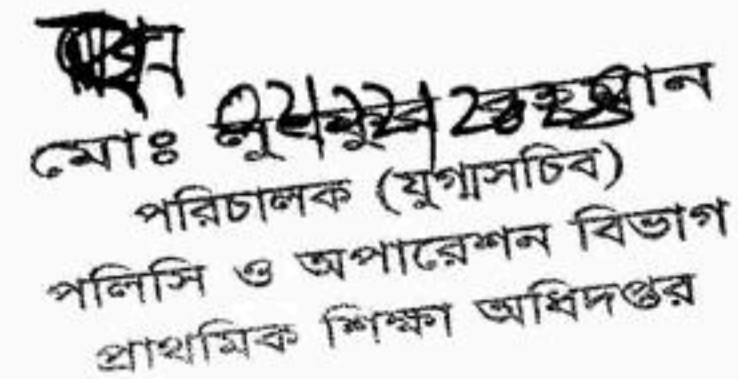 মোঃ লুৎফুর রহমান
পরিচালক (যুগ্মসচিব)
পলিসি ও অপারেশন বিভাগ
প্রাথমিক শিক্ষা অধিদপ্তর